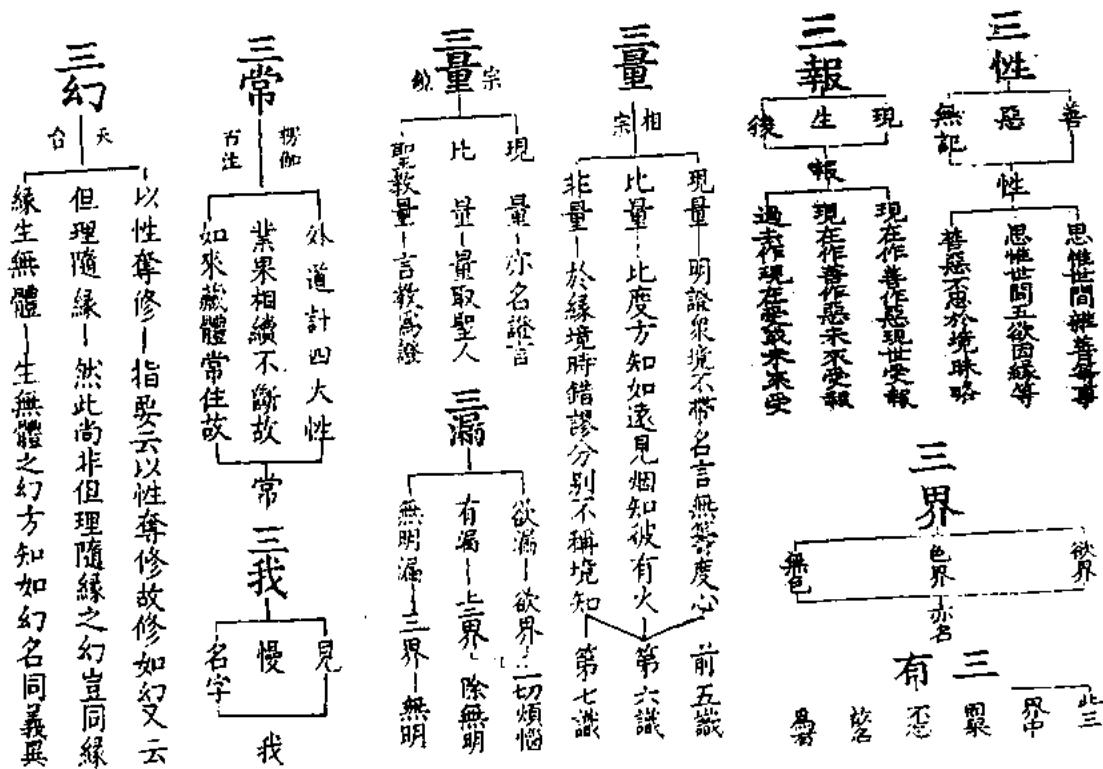 三性
善
惡
無記
性
思惟世間雜善等事
思惟世間五欲因緣等
善惡不思於境昧略
三報
現
生
後
報
現在作善作惡現世受報
現在作善作惡未來受報
過去作現在受或未來受
三界
欲界
色界
無色
亦名
三有
此三
界中
因果
不忘
故名
爲有
三量
相宗
現量－明證衆境不帶名言無籌度心
比量－比度方知如遠見烟知彼有火
非量－於緣境時錯謬分別不稱境知
前五識
第六識
第七識
三量
宗鏡
現量－亦名證言
比量－量取聖人
聖教量－言教爲證
三漏
欲漏－欲界一切煩惱
有漏－上二界除無明
無明漏－三界－無明
三常
楞伽
百法
外道計四大性
業果相續不斷故
如來藏體常住故
常
三我
見
慢
名字
我
三幻
天台
以性奪修－指要云以性奪修故修如幻又云
但理隨緣－然此尚非但理隨緣之幻豈同緣
緣生無體－生無體之幻方知如幻名同義異